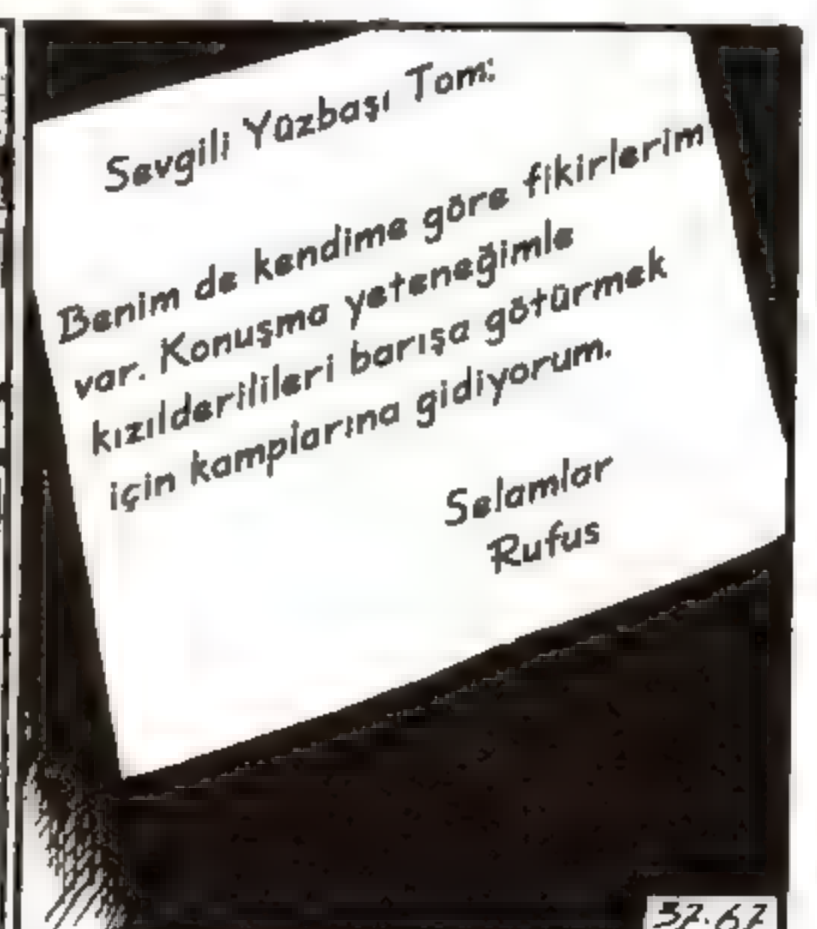 Sevgili Yüzbaşı Tom:
Benim de kendime göre fikirlerim
var. Konuşma yeteneğimle
kızılderilileri barışa götürmek
için kamplarına gidiyorum.
Selamlar
Rufus
37.67